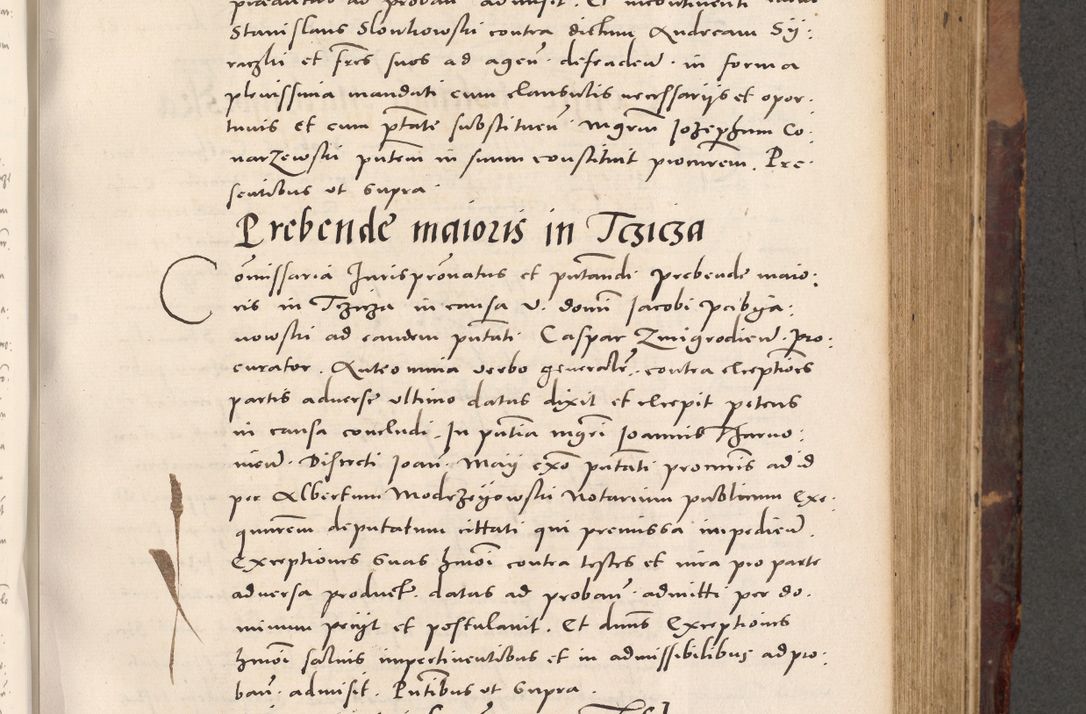 Stanislaus Slonkowski contra dictum Andream Sÿ:
raczki et fres suos ad agen̄. defraden̄. in forma
plenissima mandati cum clausulis necessarijs et opor:
tunis et cum ptāte substituen̄. Mgrm̄ Jozephum Co:
narzewski pn̄tem in suum constituit procurem. Pre:
sentibus ut supra.
Prebende maioris in Tczicza
Com̄issaria Jurispronatus et pn̄tandi prebende maio:
ris in Tczicza in causa v. domi Jacobi Pcibÿa:
nowski ad eandem pn̄tati Caspar Zmigrodien̄. pro:
curator. Ante omnia verbo generalr̄. contra exceptiones
partis adverse ultimo datas dixit et excepit petens
in causa concludi. In pn̄tia mgri Joannis Tharno:
nien̄. Discreti Joan̄. Maij exo pn̄tati procuris ad id
per Albertum Modrzeÿowski Notarium publicum Exe:
qunrem deputatum cittati qui premissa impedien̄.
Exceptiones suas hmoi contra testes et iura pro parte
adversa product. datas ad proban̄. admitti per do:
minum petijt et postulavit. Et duns Exceptiones
hmoi salvis impertinentibus et in admissibilibus ad pro:
ban̄. admisit. Pn̄tibus ut supra.